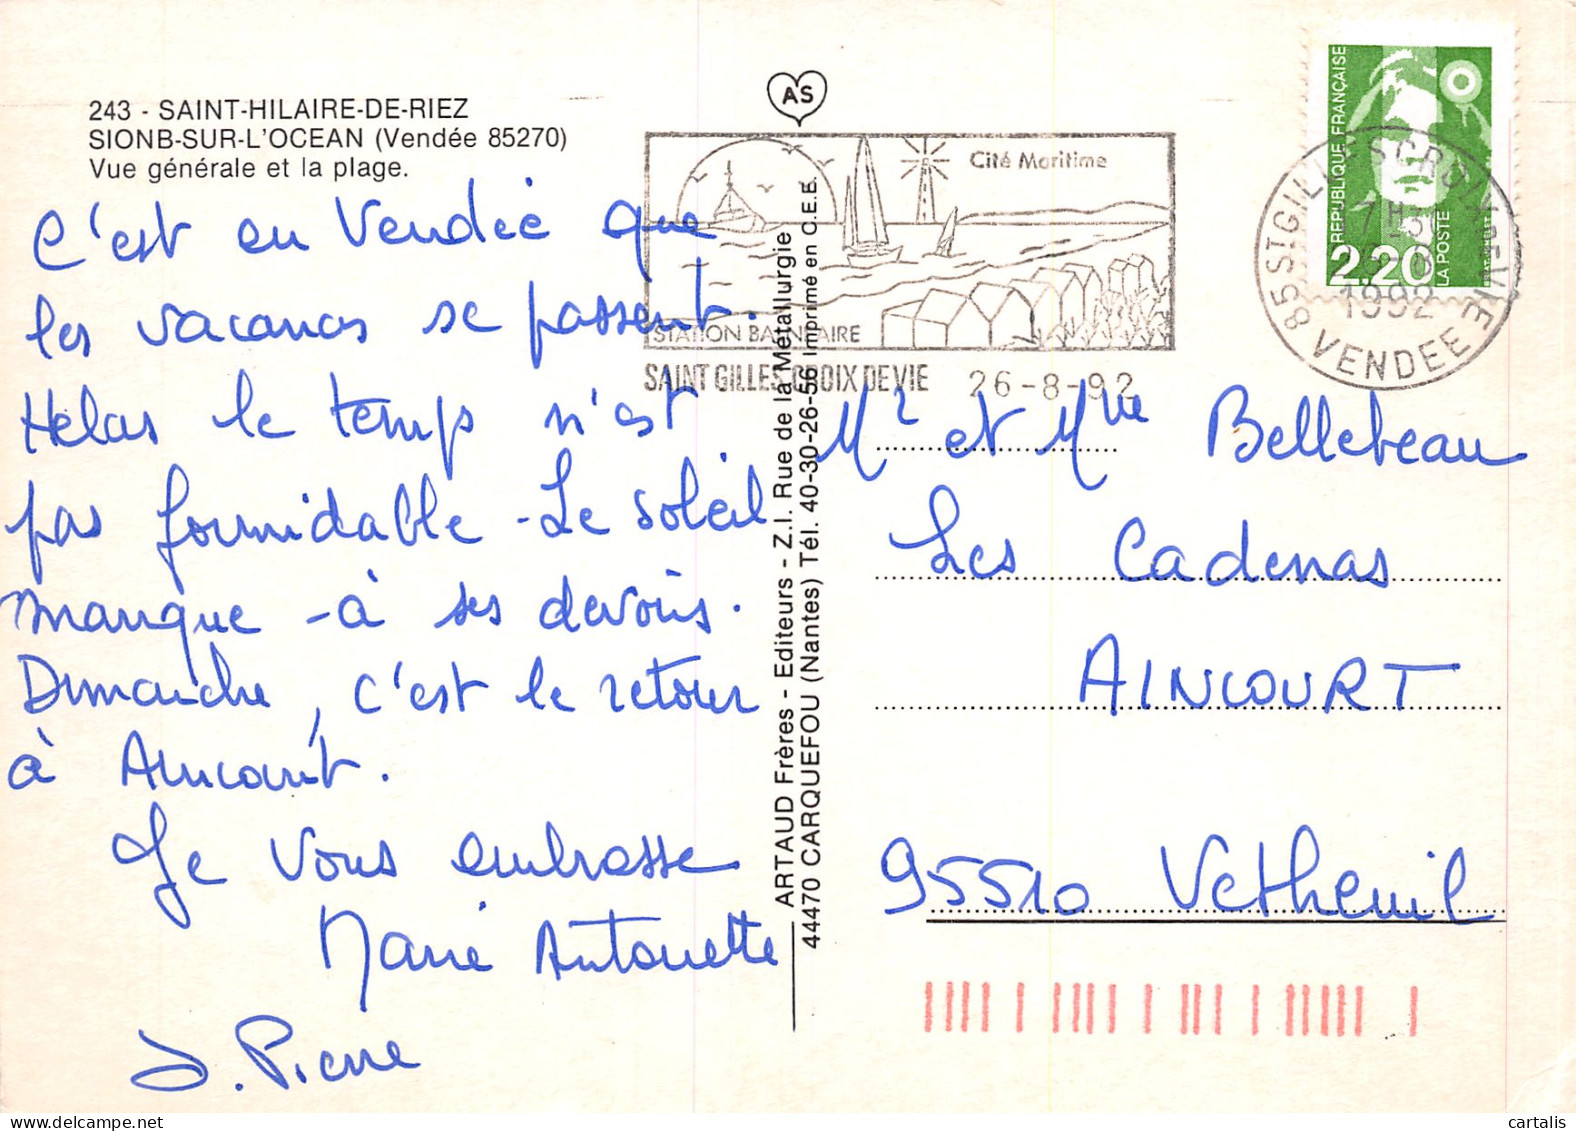 243 - SAINT-HILAIRE-DE-RIEZ
SIONB-SUR-L'OCEAN (Vendée 85270)
Vue générale et la plage.
C'est en Vendée que
les vacances se passent.
Hélas le temps n'est
pas formidable - Le soleil
manque - à ses devoirs.
Dimanche, c'est le retour
à Aincourt.
Je vous embrasse
Marie Antoinette
J. Pierre
AS
ARTAUD Frères - Editeurs - Z.I. Rue de la Métallurgie
44470 CARQUEFOU (Nantes) Tél. 40-30-26-56 Imprimé en C.E.E.
Cité Maritime
STATION BALNEAIRE
SAINT GILLES CROIX DE VIE 26-8-92
REPUBLIQUE FRANÇAISE
2,20
LA POSTE
85 ST GILLES CROIX DE VIE
1992
VENDEE
Mr et Mme Bellebeau
Les Cadenas
AINCOURT
95510 Vetheuil
cartalis